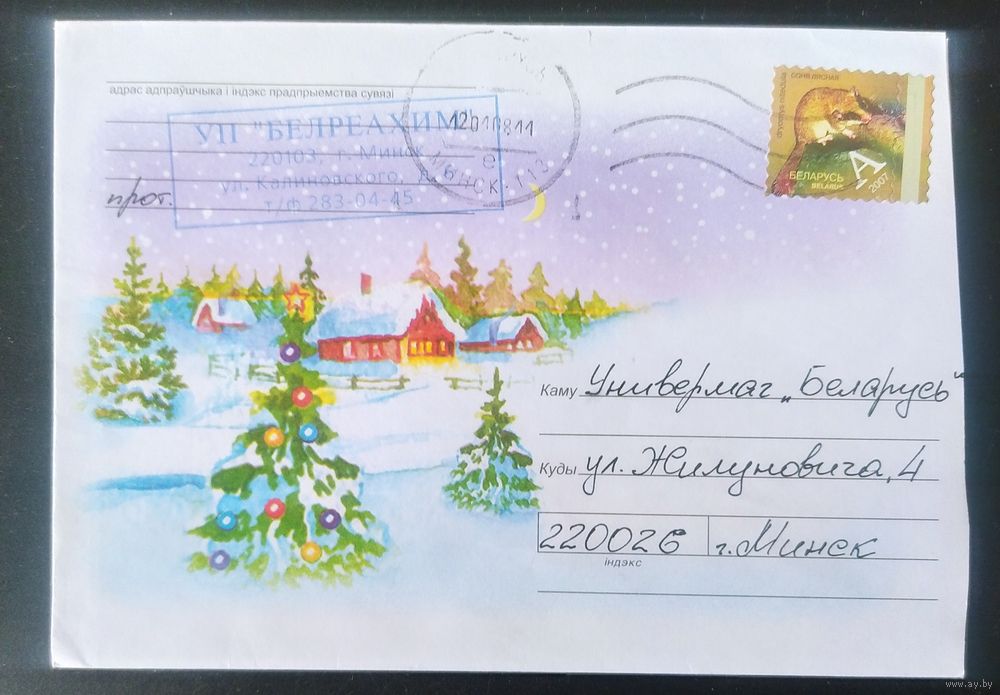 адрас адпраўшчыка і індэкс прадпрыемства сувязі
УП "БЕЛРЕАХИМ"
220103, г. Минск
ул. Калиновского,
т/ф 283-04-45
прот.
МІНСК-113
СОНЯ ЛЯСНАЯ
А
БЕЛАРУСЬ
BELARUS
2007
Каму Универмаг „Беларусь“
Куды ул. Жилуновича, 4
220026 г. Минск
індэкс
www.ay.by